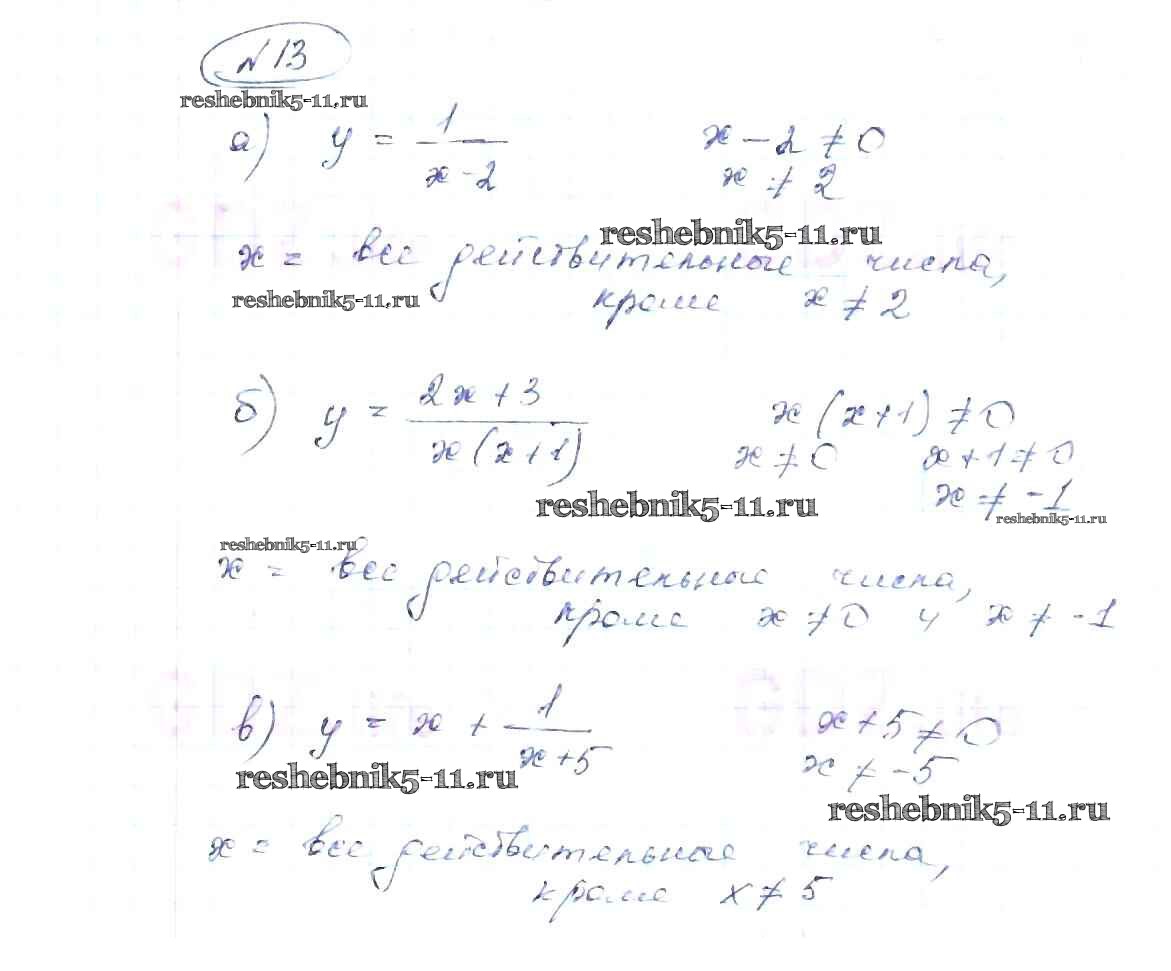 №13
reshebnik5-11.ru
а) y = 1/(x-2)    x - 2 ≠ 0
x ≠ 2
reshebnik5-11.ru
x = все действительные числа,
reshebnik5-11.ru
кроме x ≠ 2
б) y = (2x+3)/(x(x+1))    x(x+1) ≠ 0
x ≠ 0    x+1 ≠ 0
x ≠ -1
reshebnik5-11.ru
reshebnik5-11.ru
reshebnik5-11.ru
x = все действительные числа,
кроме x ≠ 0 и x ≠ -1
в) y = x + 1/(x+5)    x+5 ≠ 0
x ≠ -5
reshebnik5-11.ru
reshebnik5-11.ru
x = все действительные числа,
кроме x ≠ 5